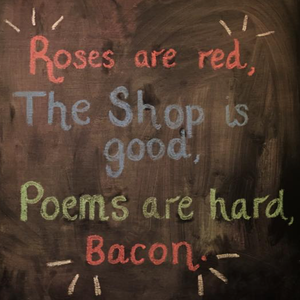 Roses are red,
The Shop is
good,
Poems are hard,
Bacon.